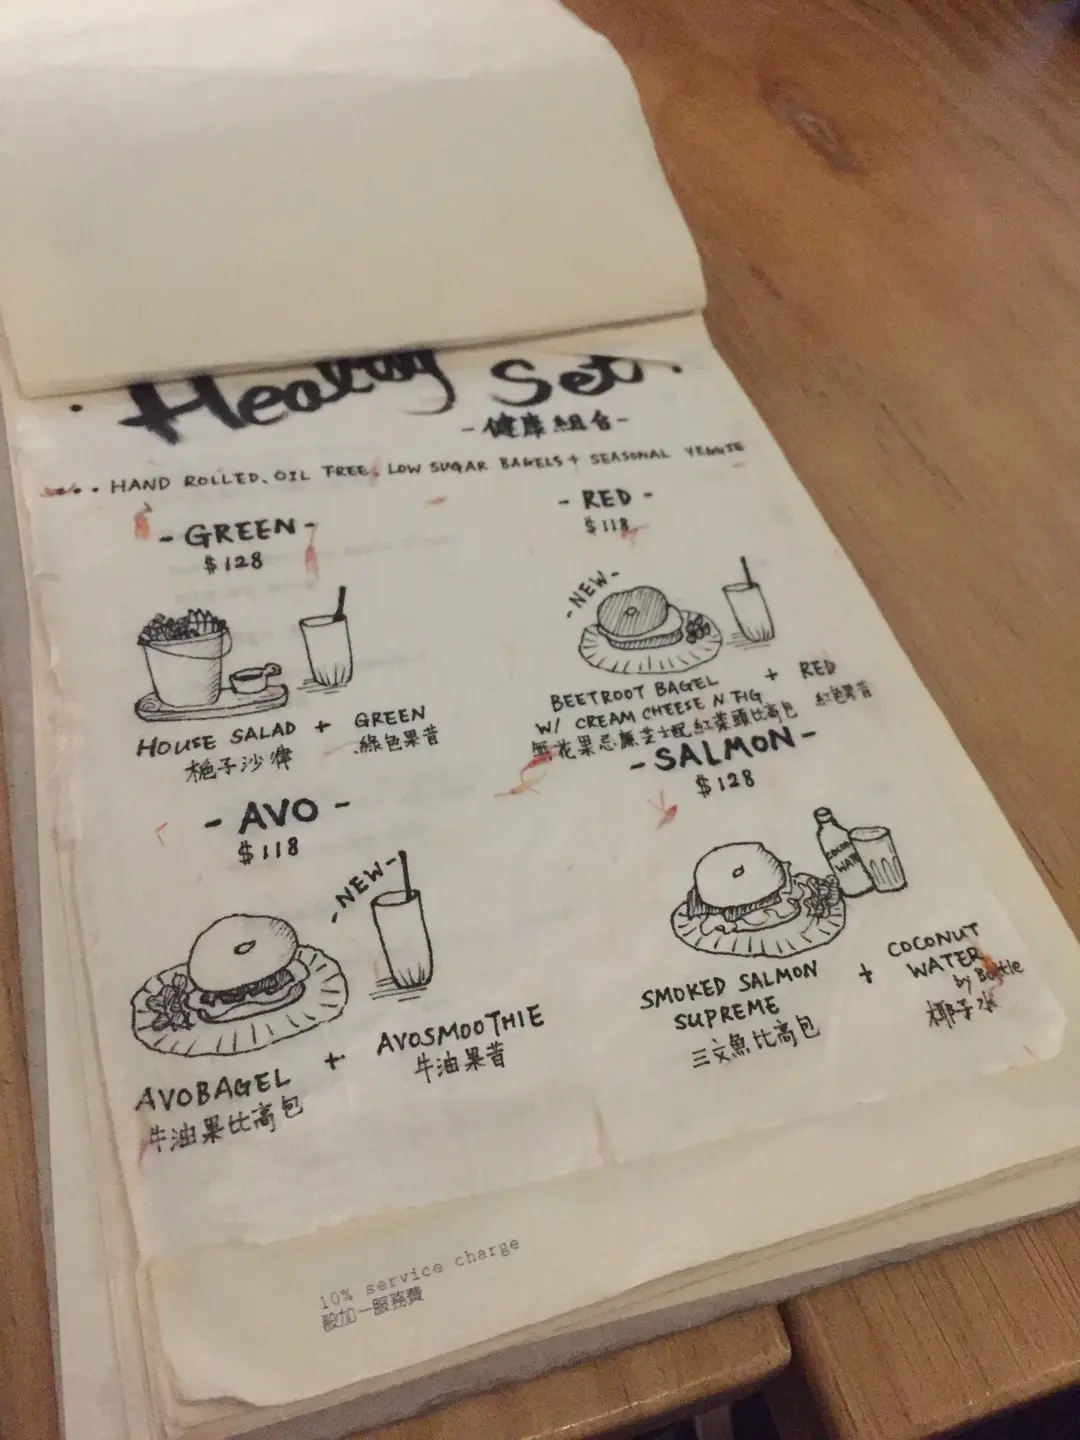 · Healthy Set ·
-健康組合-
· HAND ROLLED, OIL FREE, LOW SUGAR BAGELS + SEASONAL VEGGIE
- GREEN -
$128
HOUSE SALAD + GREEN
梔子沙律 綠色果昔
- RED -
$118
-NEW-
BEETROOT BAGEL + RED
W/ CREAM CHEESE N FIG
無花果忌廉芝士配紅菜頭比高包 紅色果昔
- AVO -
$118
-NEW-
AVOBAGEL + AVOSMOOTHIE
牛油果比高包 牛油果昔
- SALMON -
$128
COCONUT
WATER
SMOKED SALMON
SUPREME
三文魚比高包
+
COCONUT
WATER
by Bottle
椰子水
10% service charge
設加一服務費